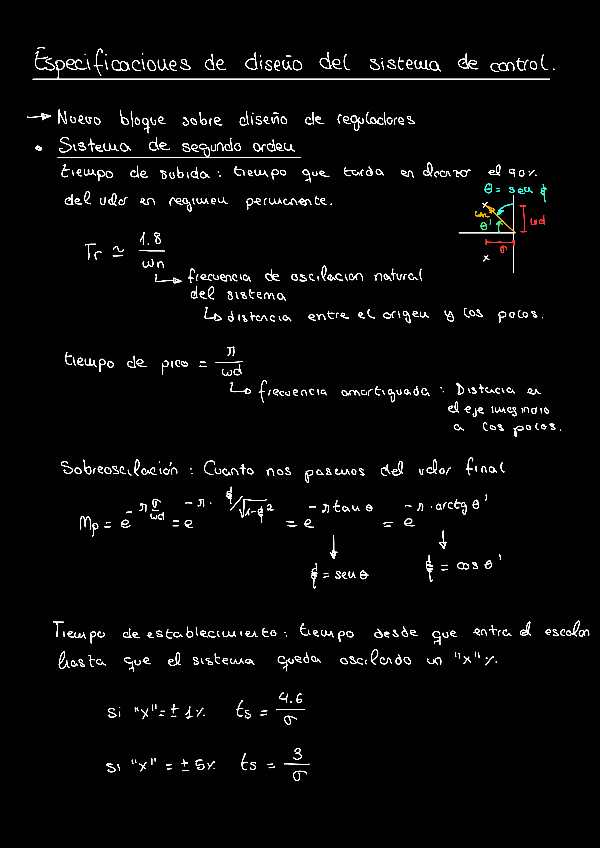 Especificaciones de diseño del sistema de control.
→ Nuevo bloque sobre diseño de reguladores
• Sistema de segundo orden
tiempo de subida : tiempo que tarda en alcanzar el 90%
del valor en regimen permanente.
θ = sen ξ
wn
θ'
wd
σ
Tr ≃ 1.8 / wn
↳ frecuencia de oscilacion natural
del sistema
↳ distancia entre el origen y los polos.
tiempo de pico = π / wd
↳ frecuencia amortiguada : Distacia en
el eje imaginario
a los polos.
Sobreoscilación : Cuanto nos pasamos del valor final
Mp = e^(-π σ/wd) = e^(-π · ξ/√(1-ξ²)) = e^(-π tan θ) = e^(-π · arctg θ')
ξ = sen θ
ξ = cos θ'
Tiempo de establecimiento : tiempo desde que entra el escalon
hasta que el sistema queda oscilando un "x" %.
si "x" = ± 1% ts = 4.6 / σ
si "x" = ± 5% ts = 3 / σ